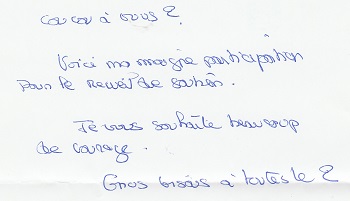 coucou à vous 2.
Voici ma maigre participation
pour le recueil de soutien.
Je vous souhaite beaucoup
de courage.
Gros bisous à toutes le 2